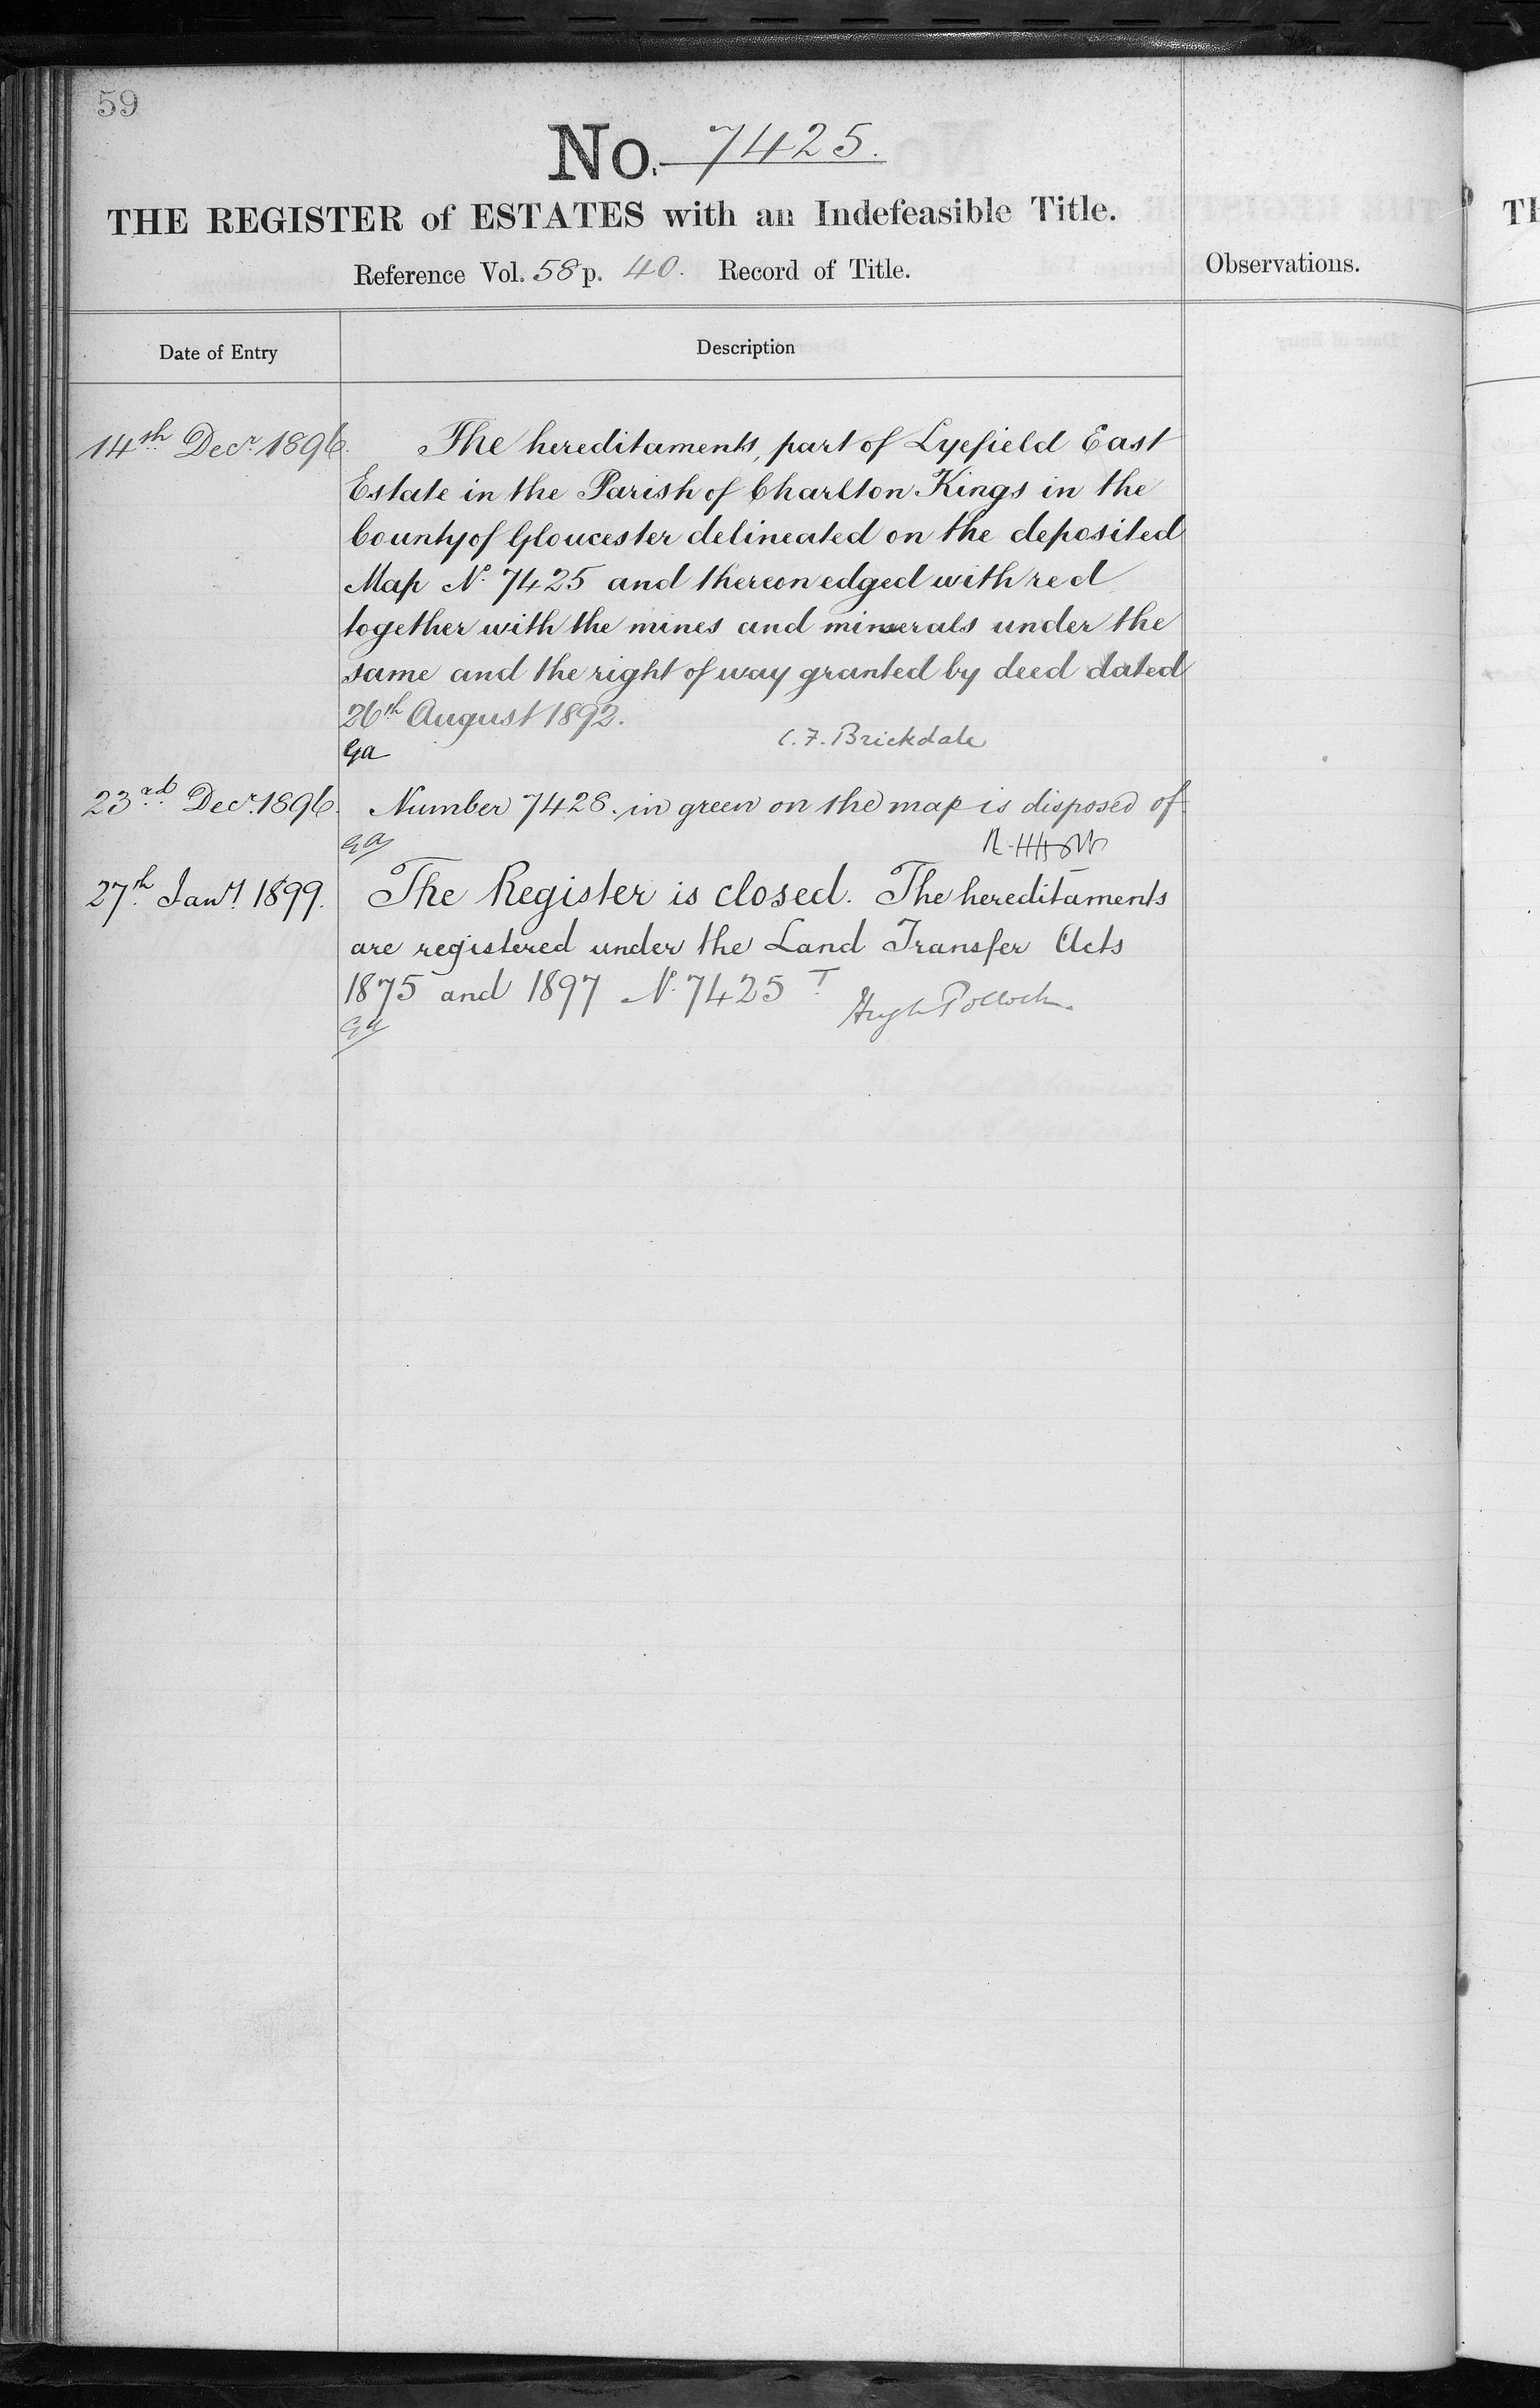 59
No. 7425.
THE REGISTER of ESTATES with an Indefeasible Title.
Reference Vol. 58 p. 40. Record of Title.
Observations.
Date of Entry
Description
14th Decr. 1896.
The hereditaments, part of Lyefield East
Estate in the Parish of Charlton Kings in the
County of Gloucester delineated on the deposited
Map No. 7425 and thereon edged with red
together with the mines and minerals under the
same and the right of way granted by deed dated
26th August 1892.
C. F. Brickdale
Ga
23rd Decr. 1896.
Number 7428. in green on the map is disposed of
Ga
27th Jany. 1899.
The Register is closed. The hereditaments
are registered under the Land Transfer Acts
1875 and 1897 No. 7425 T
Hugh Pollock
Ga